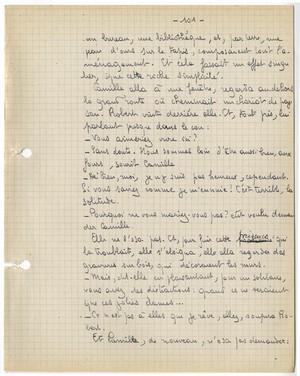 - 101 -
un bureau, une bibliothèque, et, par terre, une
peau d'ours sur le tapis, composaient tout l'a-
ménagement. Et cela faisait un effet singu-
lier, que cette riche simplicité.
Camille alla à une fenêtre, regarda au dehors
la grand'route où cheminait un chariot de pay-
san. Robert resta derrière elle. Et, tout près, lui
parlant presque dans le cou:
- Vous aimeriez vivre ici?
- Sans doute. Nous sommes loin d'être aussi bien, aux
Jours, sourit Camille
- Hé bien, moi, je n'y suis pas heureux, cependant.
Si vous saviez comme je m'ennuie! C'est terrible, la
solitude.
- Pourquoi ne vous mariez-vous pas? eût voulu deman-
der Camille.
Elle ne l'osa pas. Et, pour fuir cette présence qui
la troublait, elle s'éloigna, elle alla regarder des
gravures sur bois, qui décoraient les murs.
- Mais, dit-elle en plaisantant, pour un solitaire,
vous avez des distractions. Quand ce ne seraient
que ces jolies dames...
- Ce n'est pas à elles que je rêve, allez, soupira Ro-
bert.
Et Camille, de nouveau, n'osa pas demander: